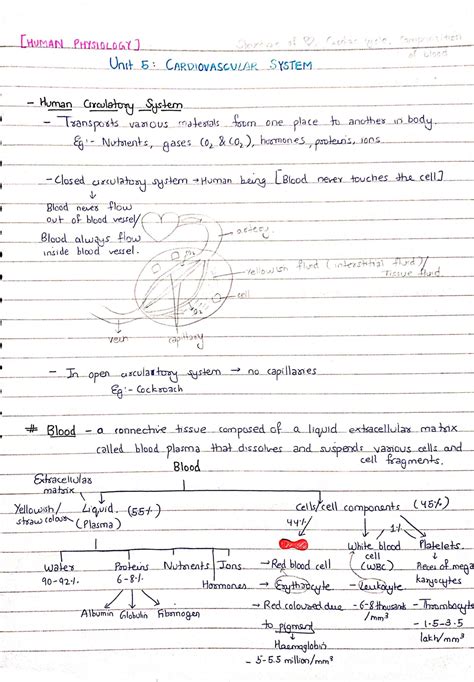 [HUMAN PHYSIOLOGY]
Structure of
of blood
Unit 5: CARDIOVASCULAR SYSTEM
- Human Circulatory System
- Transports various materials from one place to another in body.
Eg:- Nutrients, gases (O₂ & CO₂), hormones, proteins, ions.
- Closed circulatory system → Human being [Blood never touches the cell]
Blood never flow
out of blood vessel/
Blood always flow
inside blood vessel.
artery
Yellowish fluid (interstitial fluid)/
Tissue fluid
cell
vein
capillary
- In open circulatory system → no capillaries
Eg:- Cockroach
# Blood - a connective tissue composed of a liquid extracellular matrix
called blood plasma that dissolves and suspends various cells and
cell fragments.
Blood
Extracellular
matrix
Yellowish/
straw colour
Liquid (55%)
(Plasma)
Cells/cell components (45%)
44%
1%
Water
90-92%
Proteins
6-8%
Nutrients
Ions
Hormones
Albumin Globulin Fibrinogen
→ Red blood cell
→ Erythrocyte
→ Red coloured due
to pigment
Haemoglobin
- 5-5.5 million/mm³
White blood
cell
(WBC)
- Leukocyte
- 6-8 thousand
/mm³
Platelets
Pieces of mega
karyocytes
- Thrombocyte
- 1.5-3.5
lakh/mm³